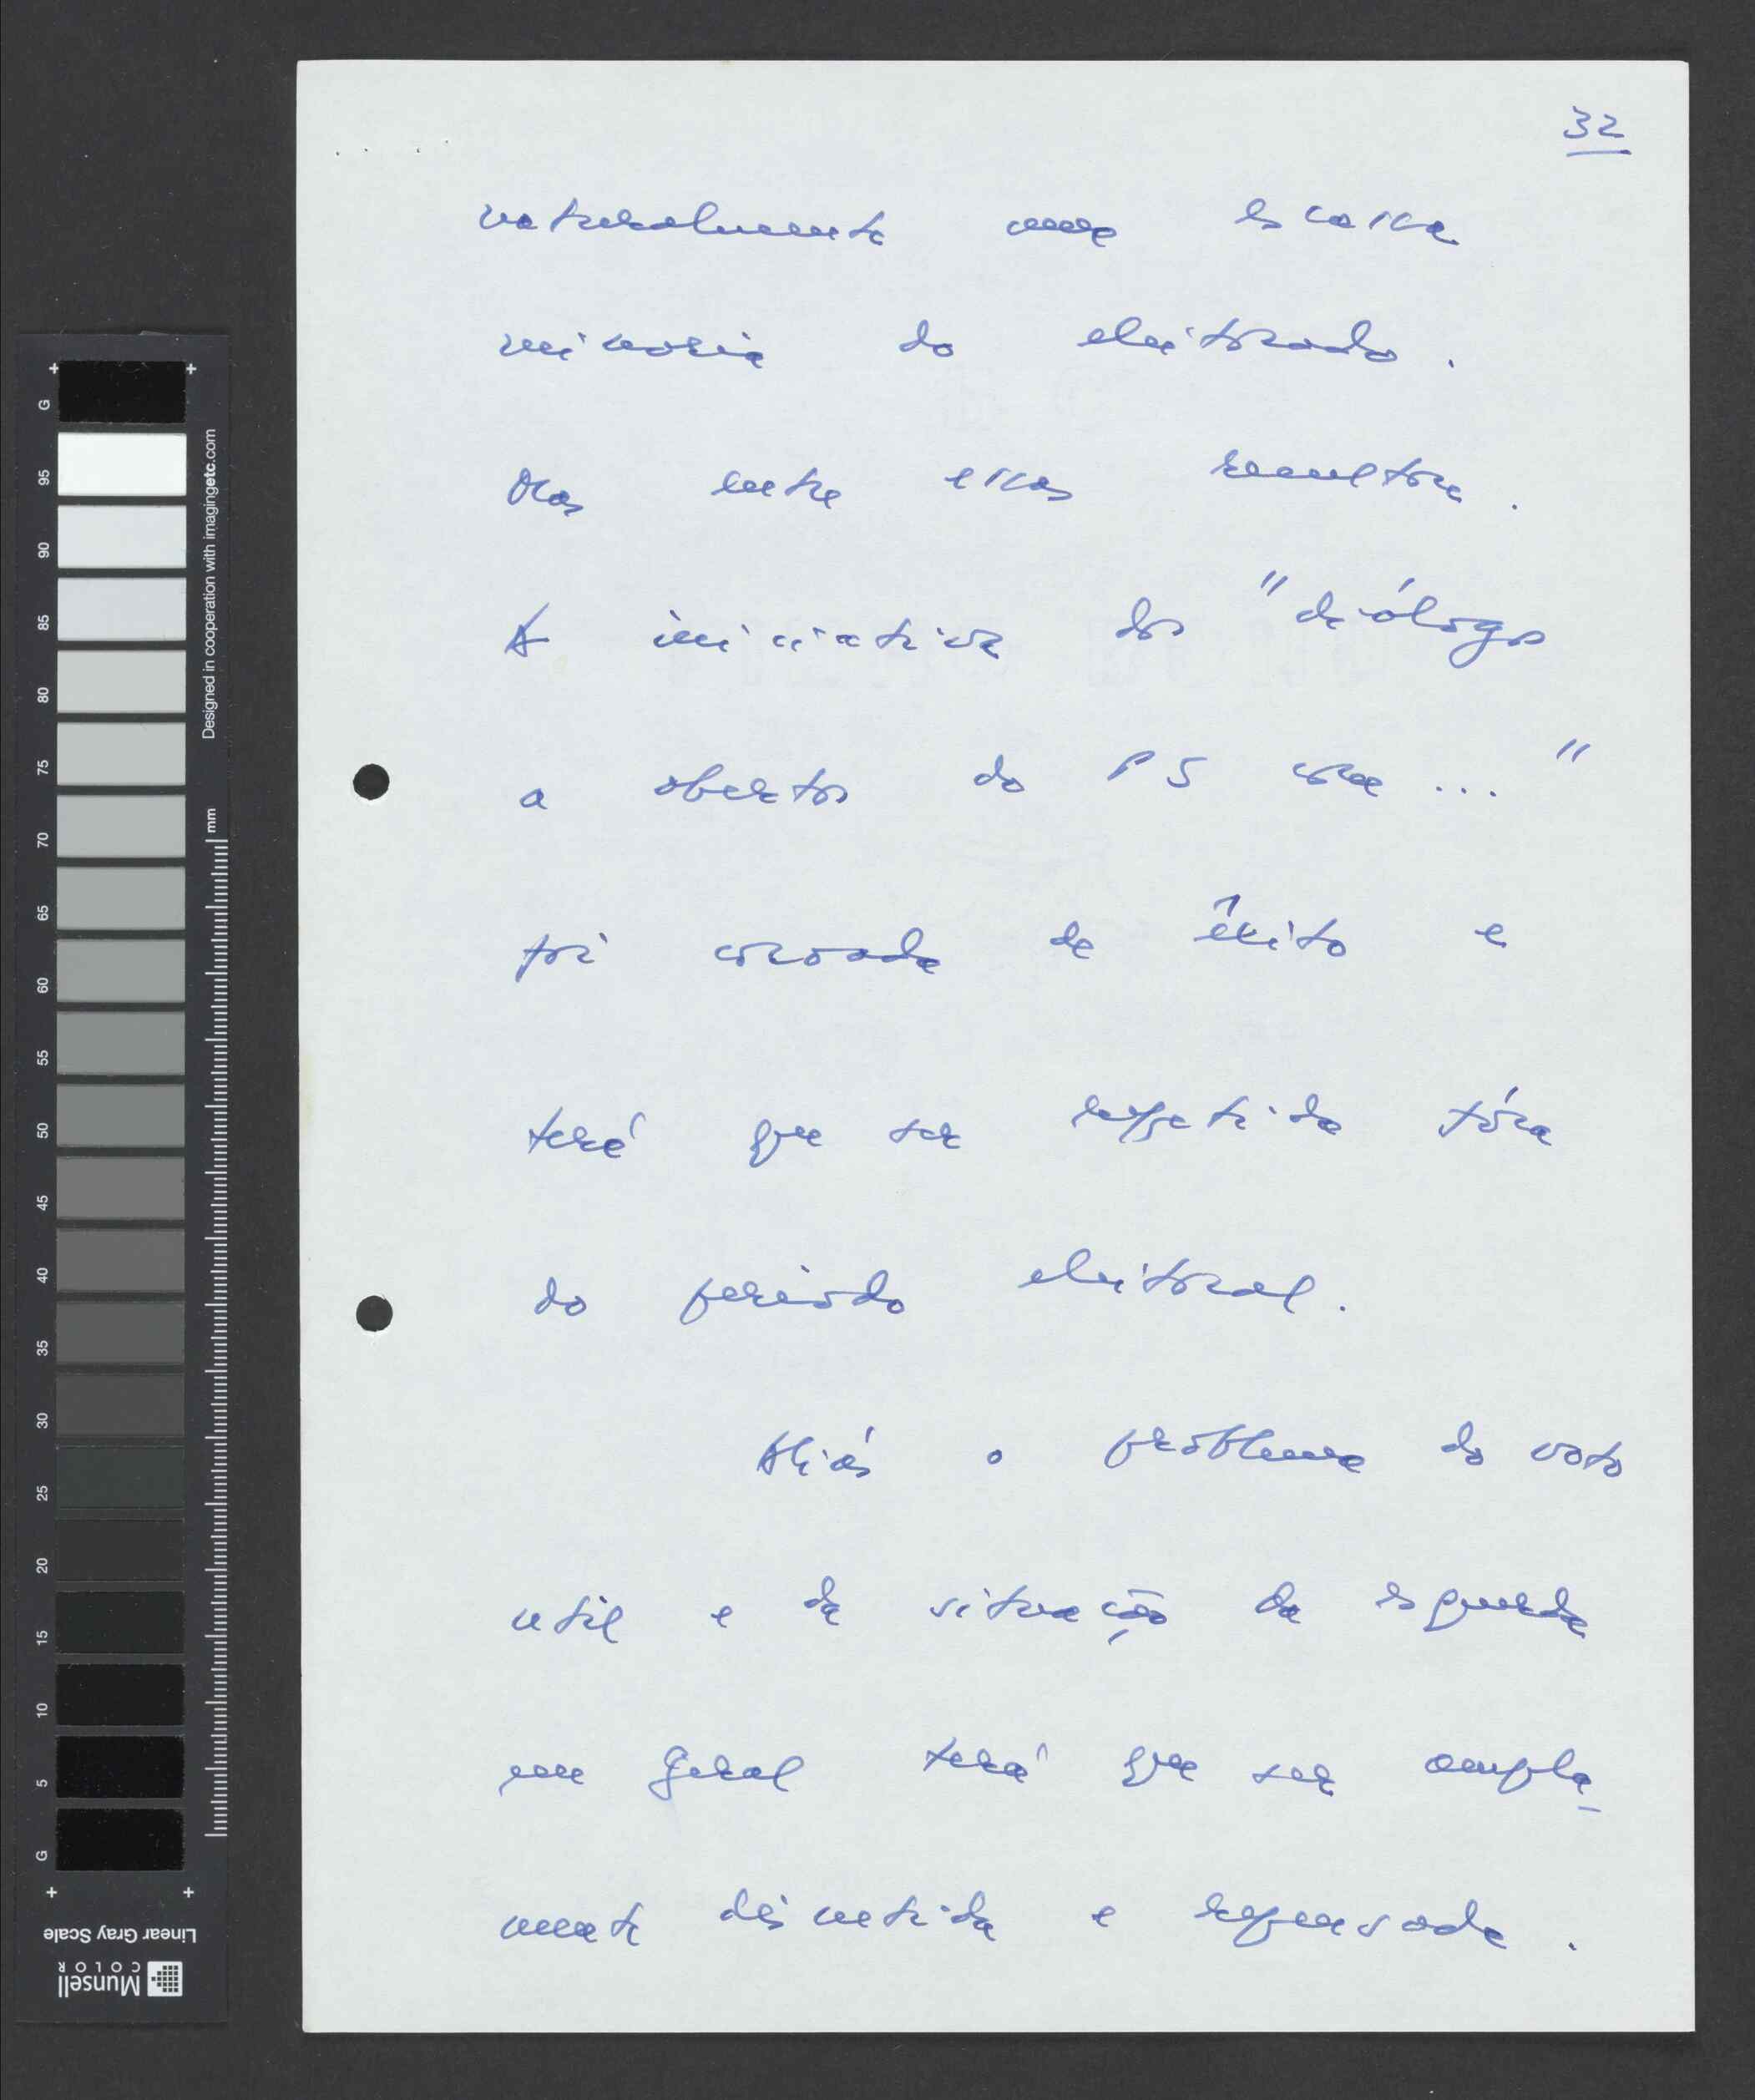 32
naturalmente uma escassa
minoria do eleitorado.
Mas entre essas resultou.
A iniciativa dos "diálogos
abertos do PS com ..."
foi coroada de êxito e
terá que ser repetida fóra
do período eleitoral.
Aliás o problema do voto
util e da situação da esquerda
em geral terá que ser ampla-
mente discutida e repensada.
G
95
90
85
80
75
70
65
60
55
50
45
40
35
30
25
20
15
10
5
G
Designed in cooperation with imagingetc.com
mm
Linear Gray Scale
Munsell
COLOR